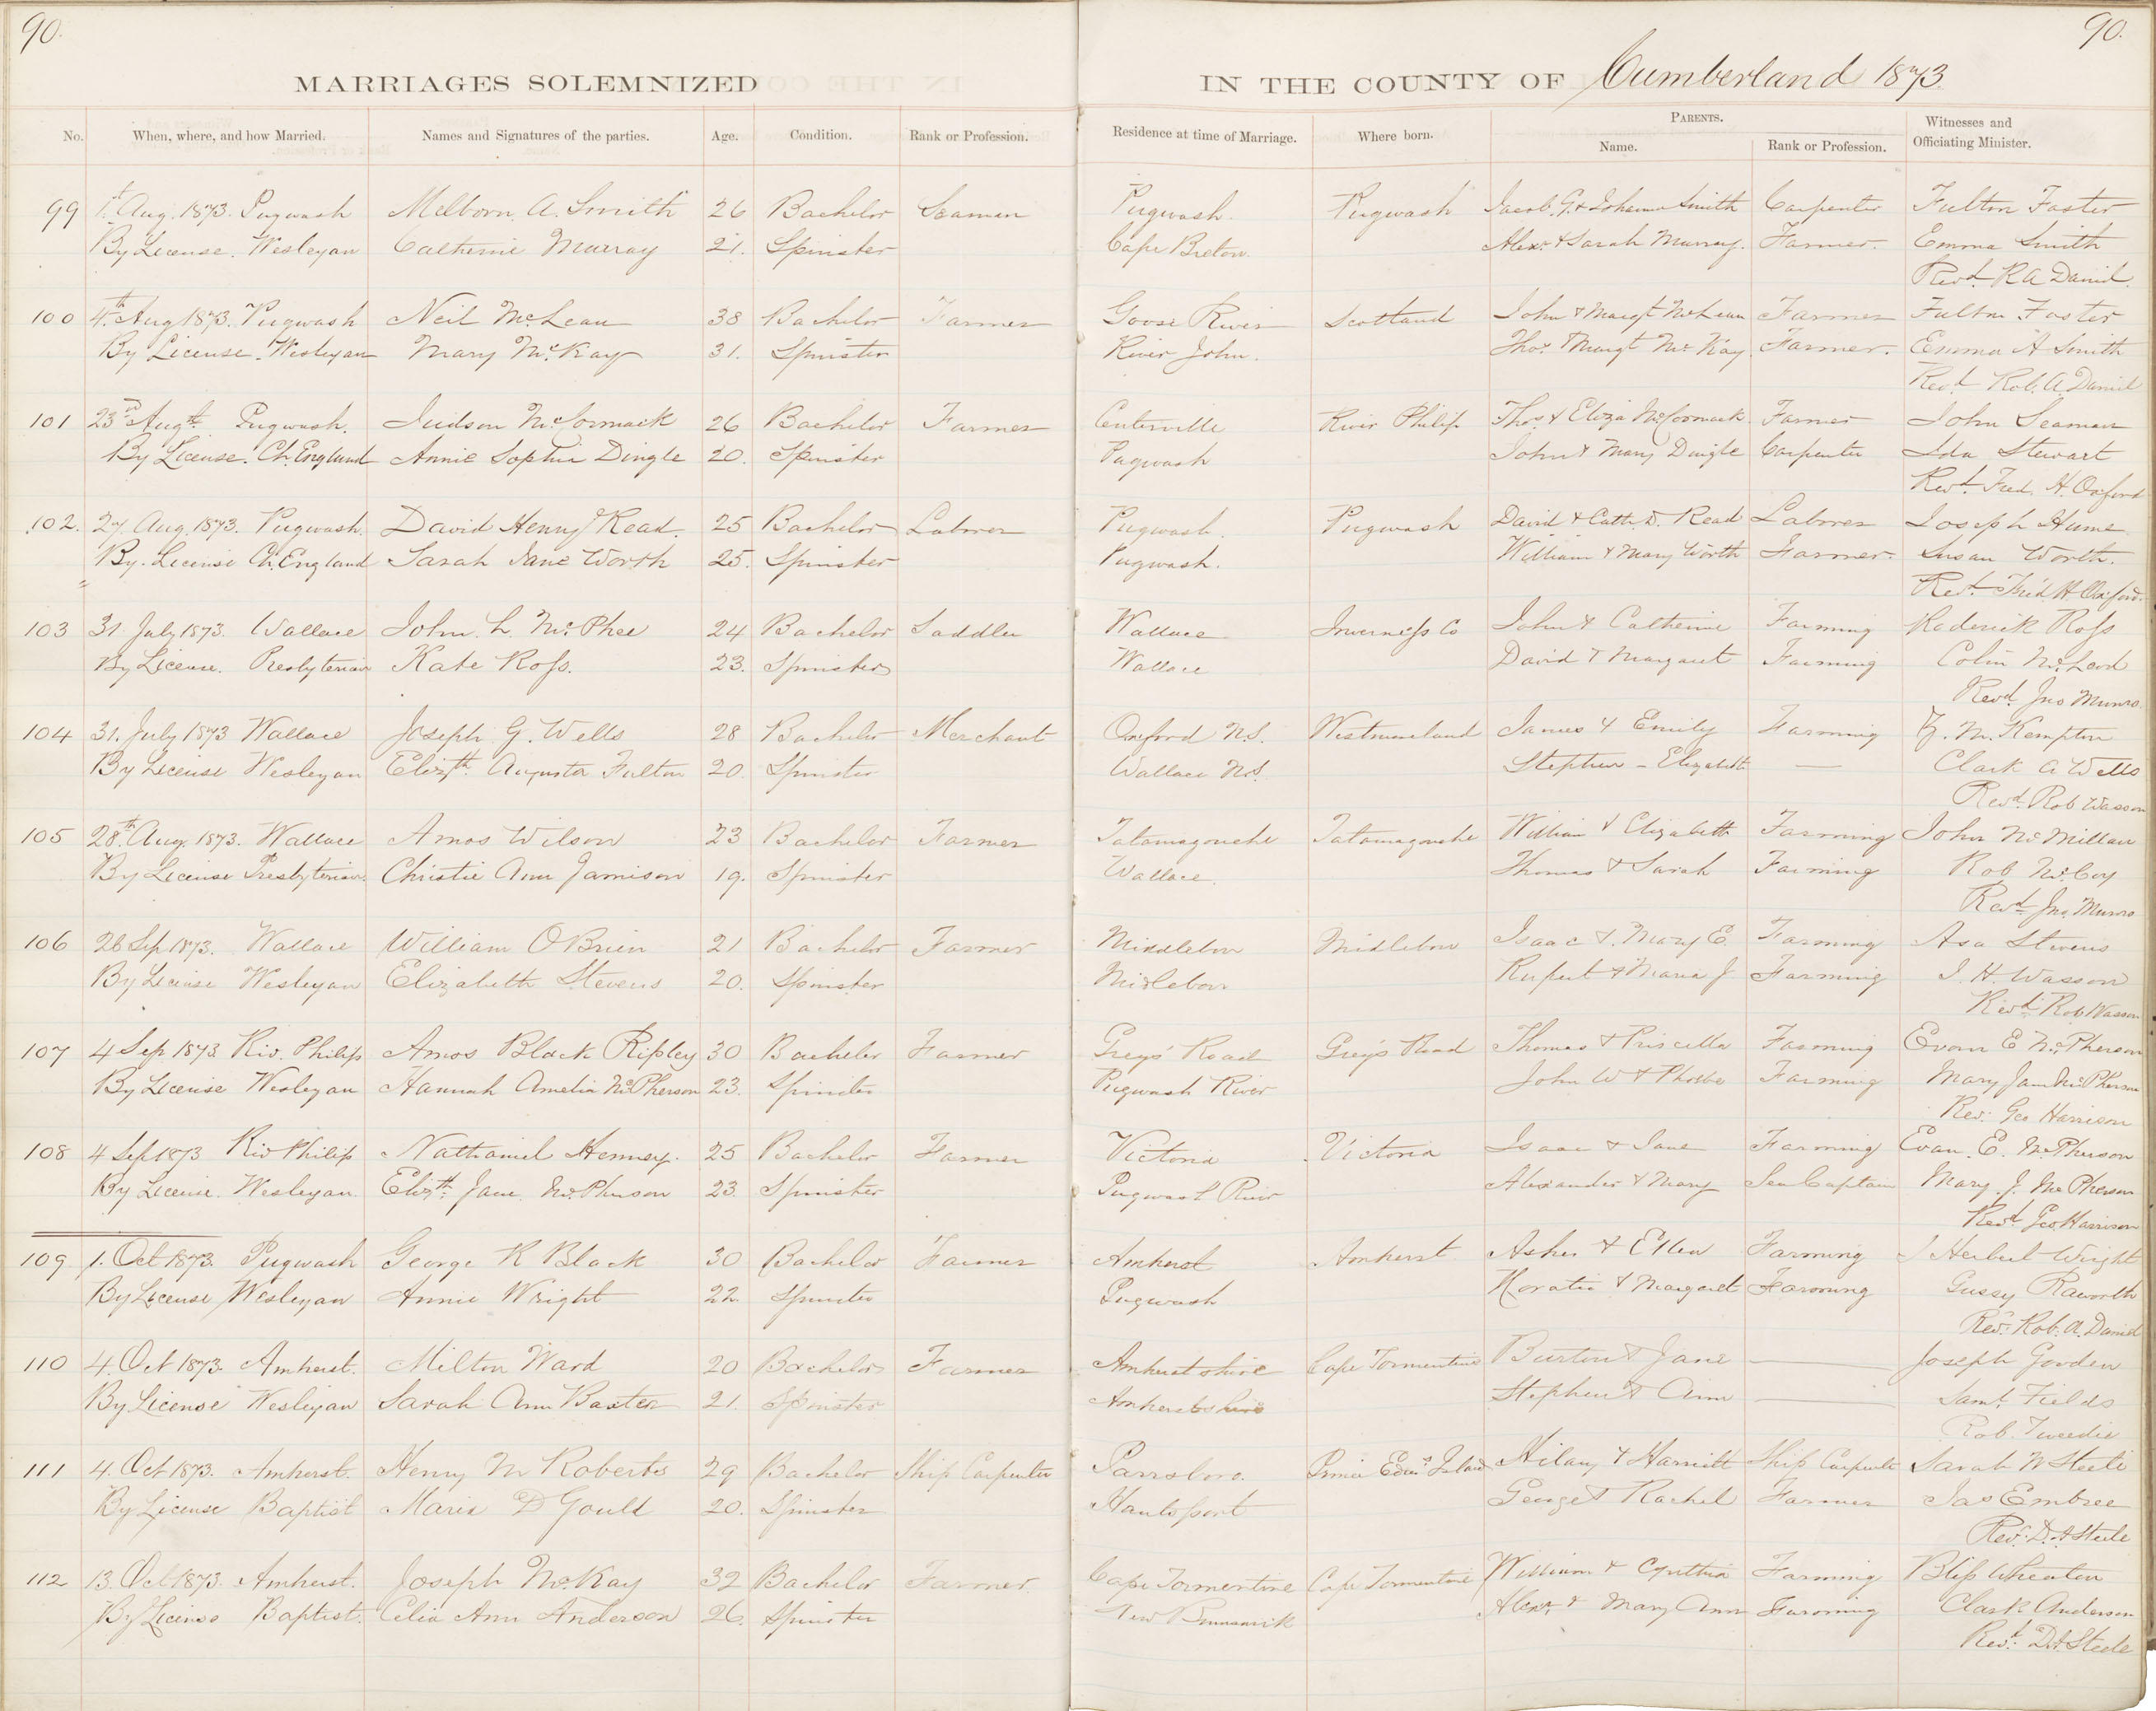 90.
90.
MARRIAGES SOLEMNIZED IN THE COUNTY OF Cumberland 1873.
No. When, where, and how Married. Names and Signatures of the parties. Age. Condition. Rank or Profession. Residence at time of Marriage. Where born. PARENTS. Name. Rank or Profession. Witnesses and Officiating Minister.
99 1st Aug. 1873. Pugwash Melborn. A. Smith 26 Bachelor Seaman Pugwash. Pugwash Jacob. G. & Johanna Smith Carpenter Fulton Foster
By License. Wesleyan Catherine Murray 21. Spinster Cape Breton. Alexr. & Sarah Murray. Farmer. Emma Smith
Revd. R A Daniel.
100 4th. Aug 1873. Pugwash Neil McLean 38 Bachelor Farmer Goose River Scotland John & Margt McLean Farmer Fulton Foster
By License. Wesleyan Mary McKay 31. Spinster River John. Thos. & Margt McKay Farmer. Emma A Smith
Revd. Rob. A. Daniel
101 23rd Augst. Pugwash. Judson McCormack 26 Bachelor Farmer Centerville River Philip Thos. & Eliza McCormack Farmer John Seaman
By License. Ch. England Annie Sophia Dingle 20. Spinster Pugwash John & Mary Dingle Carpenter Ida Stewart
Revd. Fred. H. Oxford
102. 27 Aug. 1873. Pugwash. David Henry Read. 25 Bachelor Laborer Pugwash. Pugwash David & Cath. D. Read Laborer Joseph Hume
By. License Ch. England Sarah Jane Worth 25. Spinster Pugwash. William & Mary Worth Farmer. Susan Worth.
Revd. Fred H Oxford.
103 31 July 1873. Wallace John. L. McPhee 24 Bachelor Saddler Wallace Inverness Co John & Catherine Farming Roderick Ross
By License. Presbyterian Kate Ross. 23. Spinster Wallace David & Margaret Farming Colin McLeod
Revd. Jno Munro
104 31. July 1873 Wallace Joseph G. Wells 28 Bachelor Merchant Oxford N.S. Westmoreland James & Emily Farming M. Kempton
By License Wesleyan Elizth. Augusta Fulton 20. Spinster Wallace N.S. Stephen - Elizabeth — Clark A Wells
Revd. Rob Wasson
105 28th. Aug. 1873. Wallace Amos Wilson 23 Bachelor Farmer Tatamagouche Tatamagouche William & Elizabeth Farming John McMillan
By License Presbyterian. Christie Ann Jamison 19. Spinster Wallace. Thomas & Sarah Farming Rob McCoy
Revd. Jno. Munro
106 26 Sep 1873. Wallace William OBrien 21 Bachelor Farmer Middlebor Midlebor Isaac &. Mary E. Farming Asa Stevens
By License Wesleyan Elizabeth Stevens 20. Spinster Midlebor Rupert & Maria J. Farming J. H. Wasson
Revd. Rob Wasson
107 4 Sep 1873 Riv. Philip Amos Black Ripley 30 Bachelor Farmer Greys' Road Grey's Road Thomas & Priscilla Farming Evan E McPherson
By License Wesleyan Hannah Amelia McPherson 23. Spinster Pugwash River John W & Phoebe Farming Mary Jane McPherson
Rev. Geo Harrison
108 4 Sep 1873 Riv Philip Nathaniel Henney. 25 Bachelor Farmer Victoria Victoria Isaac & Jane Farming Evan. E. McPherson
By License. Wesleyan. Elizth. Jane. McPherson 23. Spinster Pugwash River Alexander & Mary Sea Captain Mary. J. McPherson
Revd. Geo. Harrison
109 1. Oct 1873. Pugwash George R Black 30 Bachelor Farmer Amherst Amherst Asher & Ellen Farming J Herbert Wright
By License Wesleyan Annie Wright 22 Spinster Pugwash Horatio & Margaret Farming Gussy Raworth
Revd. Rob. A. Daniel
110 4. Oct 1873. Amherst. Milton Ward 20 Bachelor Farmer Amherstshire Cape Tormentine Burton & Jane — Joseph Gooden
By License Wesleyan Sarah Ann Baxter 21. Spinster Amherstshire Stephen & Ann — Saml. Fields
Rob. Tweedie
111 4. Oct 1873. Amherst. Henry M Roberts 29 Bachelor Ship Carpenter Parrsboro. Prince Edwd. Island Hilary & Harriett Ship Carpenter Sarah W Steele
By License Baptist Maria D Gould 20. Spinster Hantsport George & Rachel Farmer Jas Embree
Revd. D. A Steele
112 13. Oct 1873. Amherst. Joseph McKay 32 Bachelor Farmer. Cape Tormentine Cape Tormentine William & Cynthia Farming Bliss Wheaton
By License Baptist. Celia Ann Anderson 26. Spinster New Brunswick Alexr. & Mary Ann Farming Clark Anderson
Revd. D.A. Steele